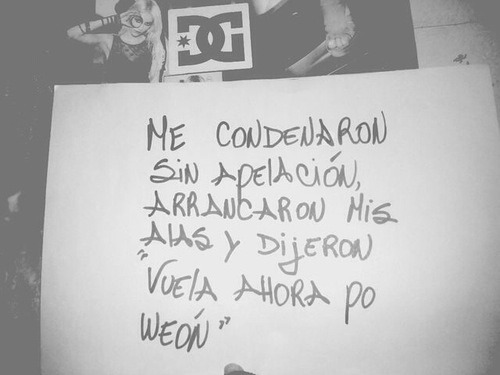 DC
ME CONDENARON
SIN APELACIÓN,
ARRANCARON MIS
ALAS Y DIJERON
"VUELA AHORA PO
WEÓN"